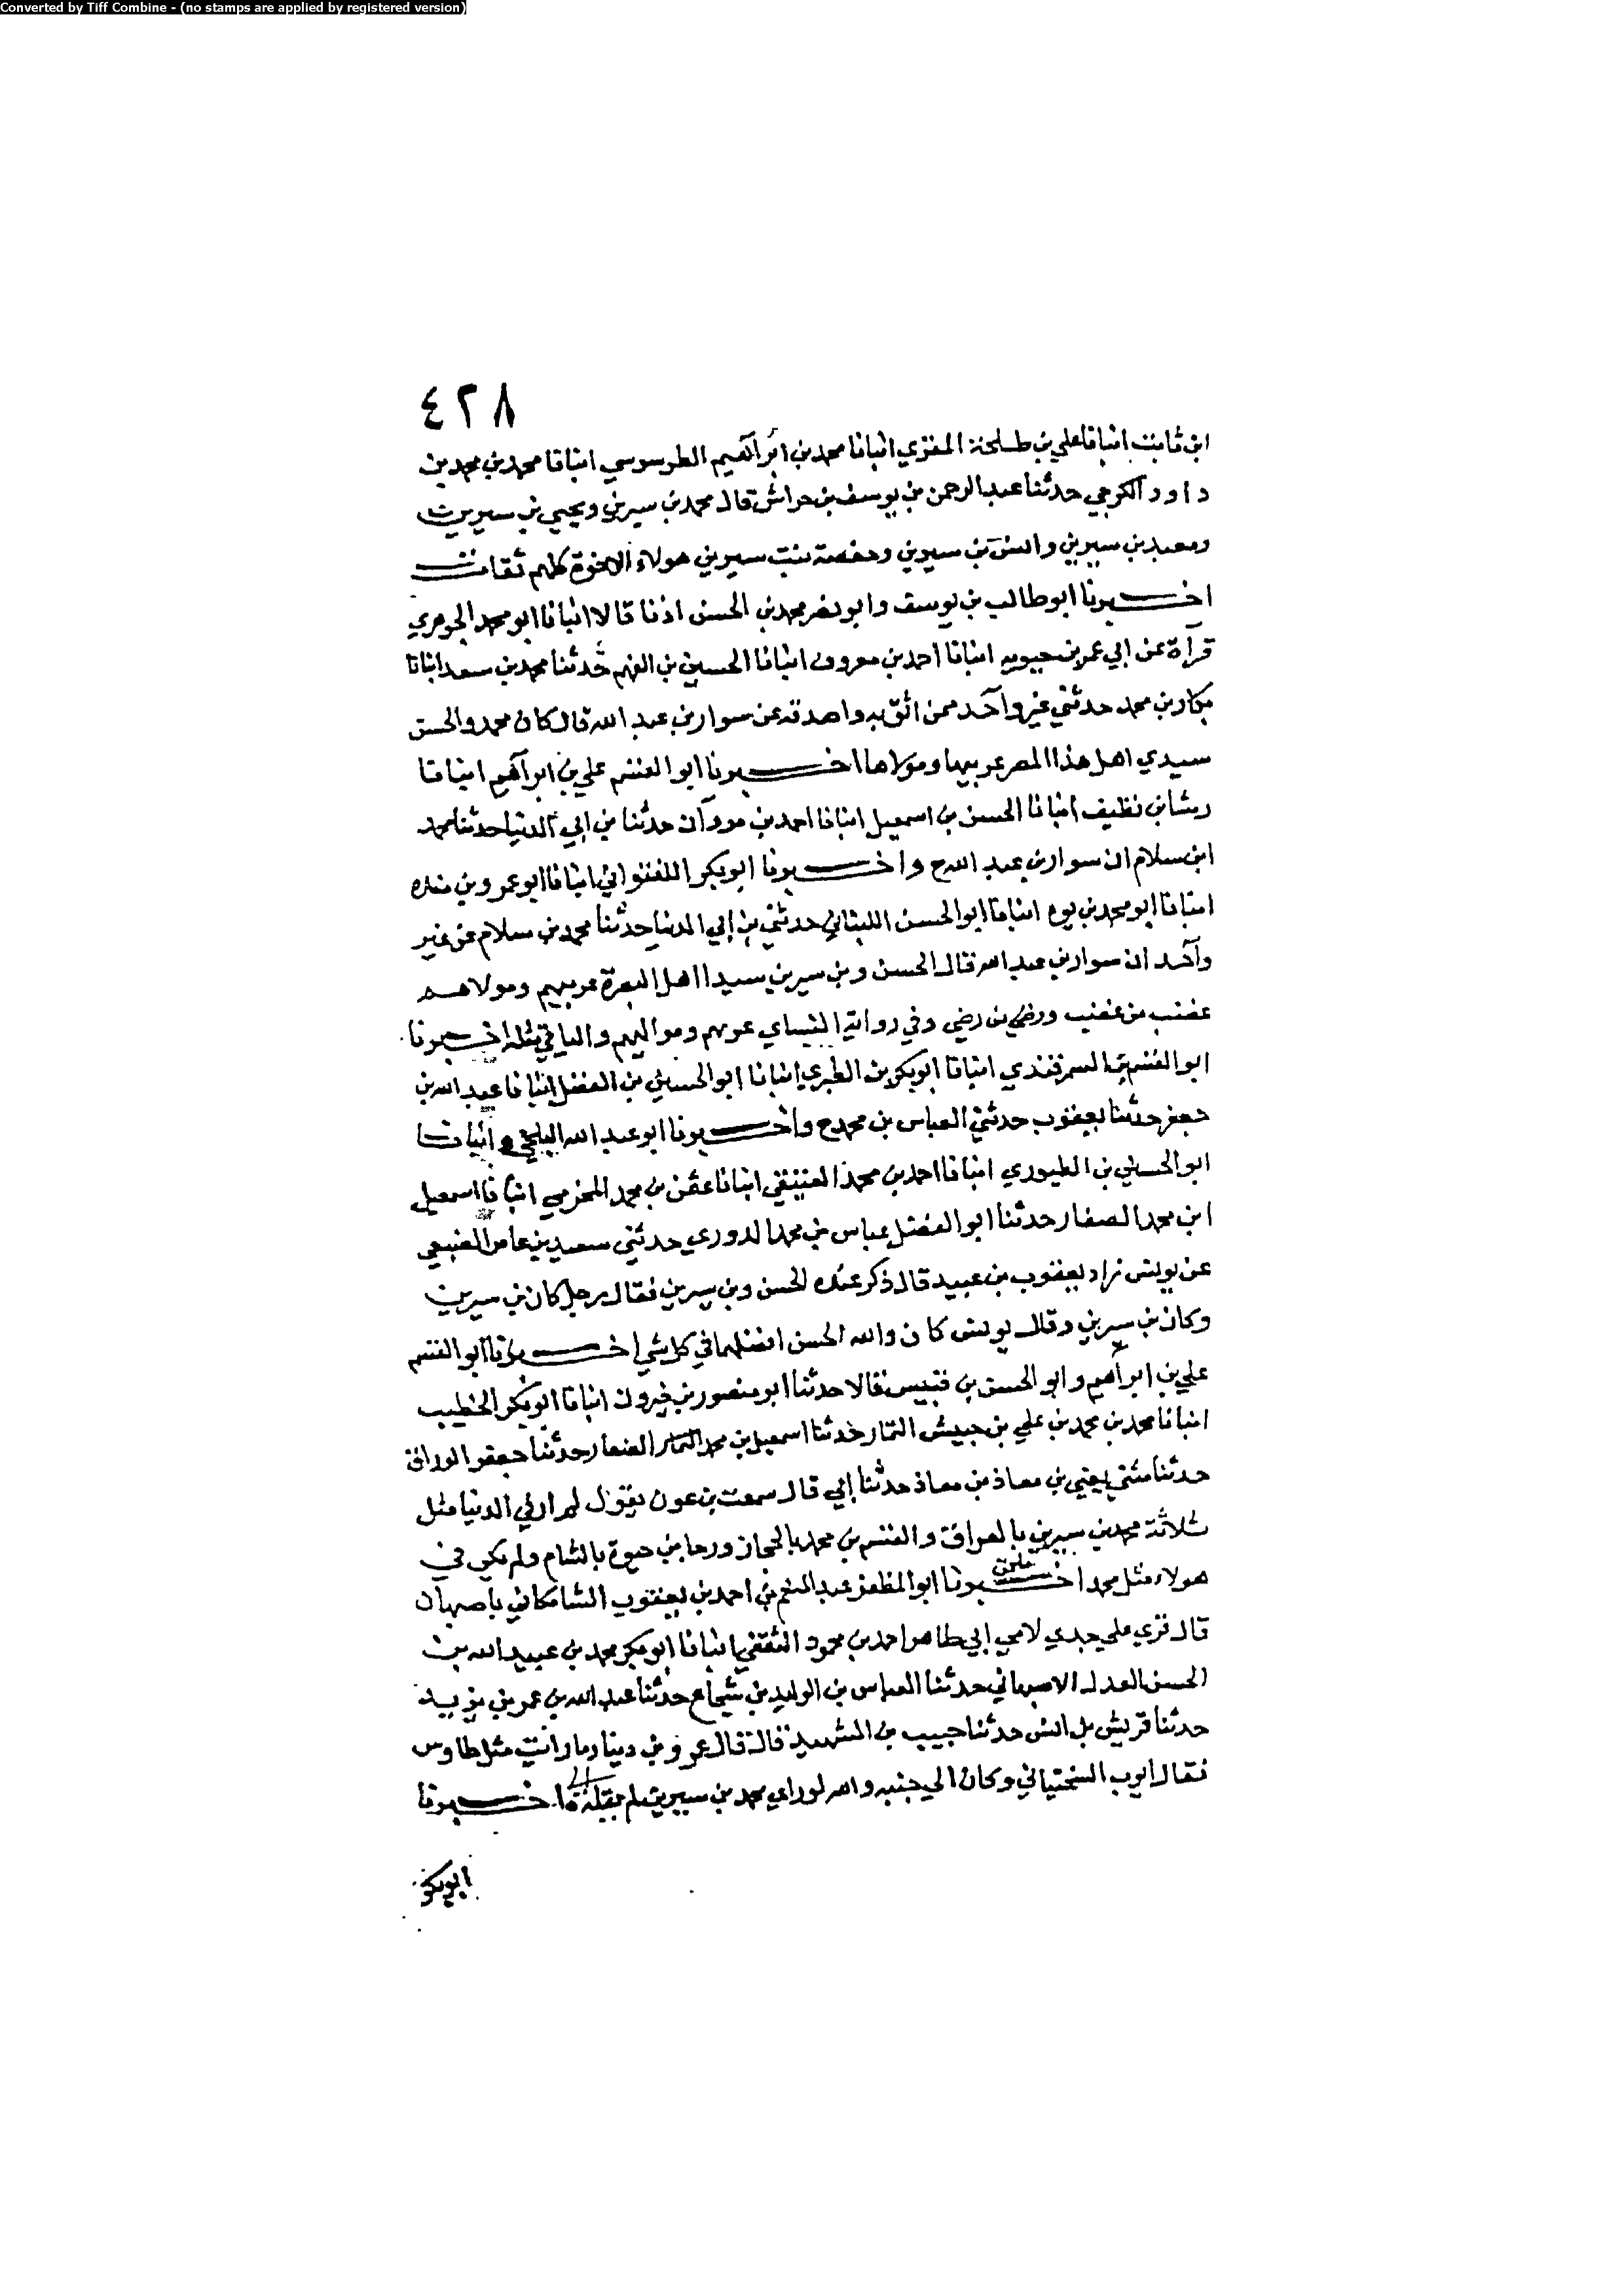 Converted by Tiff Combine - (no stamps are applied by registered version)
٤٢٨
ابن ثابت انبانا علي بن طلحة المقري انبانا محمد بن ابراهيم الطرسوسي انبانا محمد بن محمد بن
داود الكرجي حدثنا عبد الرحمن بن يوسف بن خراش قال محمد بن سيرين ويحيي بن سيرين
ومعبد بن سيرين وانس بن سيرين وحفصة بنت سيرين هولاء الاخوة كلهم ثقات
اخبرنا ابو طالب بن يوسف وابو نصر محمد بن الحسن اذنا قالا انبانا ابو محمد الجوهري
قرآة عن ابي عمر بن حيويه انبانا احمد بن معروف انبانا الحسين بن الفهم حدثنا محمد بن سعد انبانا
بكار بن محمد حدثني غير واحد ممن اثق به واصدقه عن سوار بن عبد الله قال كان محمد والحسن
سيدي اهل هذا المصر عربيها ومولاها اخبرنا ابو القسم علي بن ابراهيم انبانا
رشا بن نظيف انبانا الحسن بن اسمعيل انبانا احمد بن مروان حدثنا بن ابي الدنيا حدثنا محمد
ابن سلام ان سوار بن عبد الله ح واخبرنا ابو بكر اللفتواني انبانا ابو عمرو بن منده
انبانا ابو محمد بن يوه انبانا ابو الحسن اللبناني حدثني بن ابي الدنيا حدثنا محمد بن سلام عن غير
واحد ان سوار بن عبد الله قال الحسن وبن سيرين سيدا اهل البصرة عربيهم ومولاهم
غضب من غضب ورضي من رضي وفي رواية النساي عربهم ومواليهم والباقي مثله اخبرنا
ابو القسم بن السمرقندي انبانا ابو بكر بن الطبري انبانا ابو الحسين بن الفضل انبانا عبد الله بن
جعفر حدثنا يعقوب حدثني العباس بن محمد ح واخبرنا ابو عبد الله البلخي انبانا
ابو الحسين بن الطيوري انبانا احمد بن محمد العتيقي انبانا عثمن بن محمد المخرمي انبانا اسمعيل
ابن محمد الصفار حدثنا ابو الفضل عباس بن محمد الدوري حدثني سعيد بن عامر الضبعي
عن يونس زاد يعقوب بن عبيد قال ذكر عنده الحسن وبن سيرين فقال رجل كان بن سيرين
وكان بن سيرين وقال يونس كان والله الحسن افضلهما في كل شي اخبرنا ابو القسم
علي بن ابراهيم وابو الحسن بن قبيس قالا حدثنا ابو منصور بن خيرون انبانا ابو بكر الخطيب
انبانا محمد بن محمد بن علي بن حبيش التمار حدثنا اسمعيل بن محمد الصفار حدثنا جعفر الوراق
حدثنا مثنى يعني بن معاذ بن معاذ حدثنا ابي قال سمعت بن عون يقول لم ار في الدنيا مثل
ثلاثة محمد بن سيرين بالعراق والقسم بن محمد بالحجاز ورجا بن حيوة بالشام ولم يكن في
هولاء مثل محمد اخبرنا ابو المظفر عبد المنعم بن احمد بن يعقوب الشامكاني باصبهان
قال قري علي جدي لامي ابي طاهر احمد بن محمود الثقفي انبانا ابو بكر محمد بن عبيد الله بن
الحسن العدل الاصبهاني حدثنا العباس بن الوليد بن شجاع حدثنا عبد الله بن عمر بن يزيد
حدثنا قريش بن انس حدثنا حبيب بن الشهيد قال قال عمرو بن دينار ما رايت مثل طاوس
فقال ايوب السختياني وكان الي جنبه والله لو راي محمد بن سيرين لم يقله اخبرنا
ابو بكر